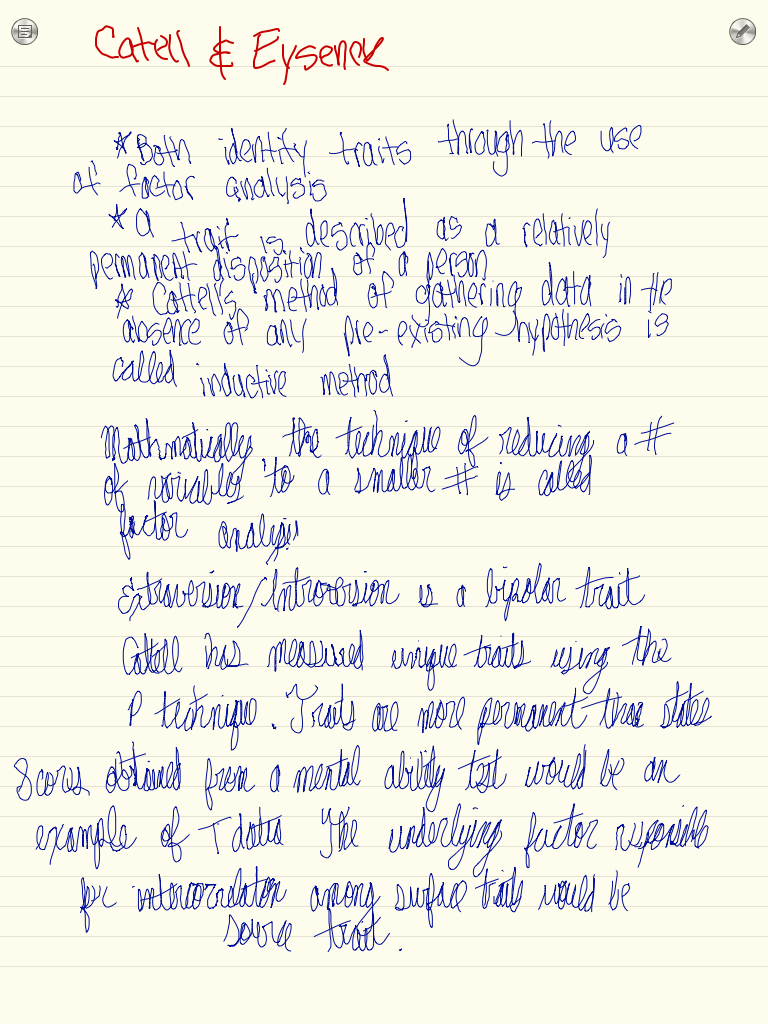 Catell & Eysenck
* Both identity traits through the use
of factor analysis
* A trait is described as a relatively
permanent disposition of a person
* Cattell's method of gathering data in the
absence of any pre-existing hypothesis is
called inductive method
Mathmatically the technique of reducing a #
of variables to a smaller # is called
factor analysis
Extraversion/Introversion is a bipolar trait
Cattell has measured unique traits using the
P technique. Traits are more permanent than states
Scores obtained from a mental ability test would be an
example of T data The underlying factor responsible
for intercorrelation among surface traits would be
source trait.